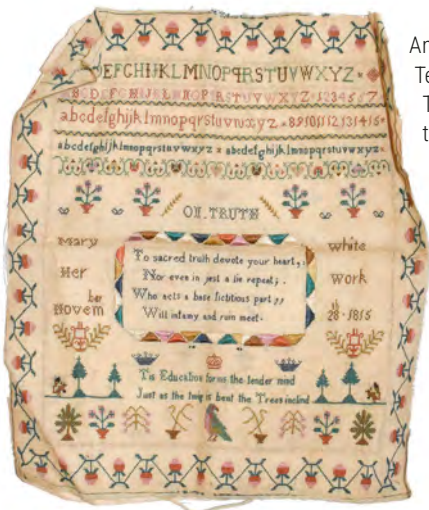 DEFGHIJKLMNOPQRSTUVWXYZ
ABCDEFGHIJKLMNOPQRSTUVWXYZ·1234567
abcdefghijklmnopqrstuvwxyz 89101112131415
abcdefghijklmnopqrstuvwxyz abcdefghijklmnopqrstuvwxyz
ON. TRUTH
Mary White
Her Work
Novem ber 28th · 1815
To sacred truth devote your heart,
Nor even in jest a lie repeat;
Who acts a base fictitious part,
Will infamy and ruin meet.
Tis Education forms the tender mind
Just as the twig is bent the Trees inclind